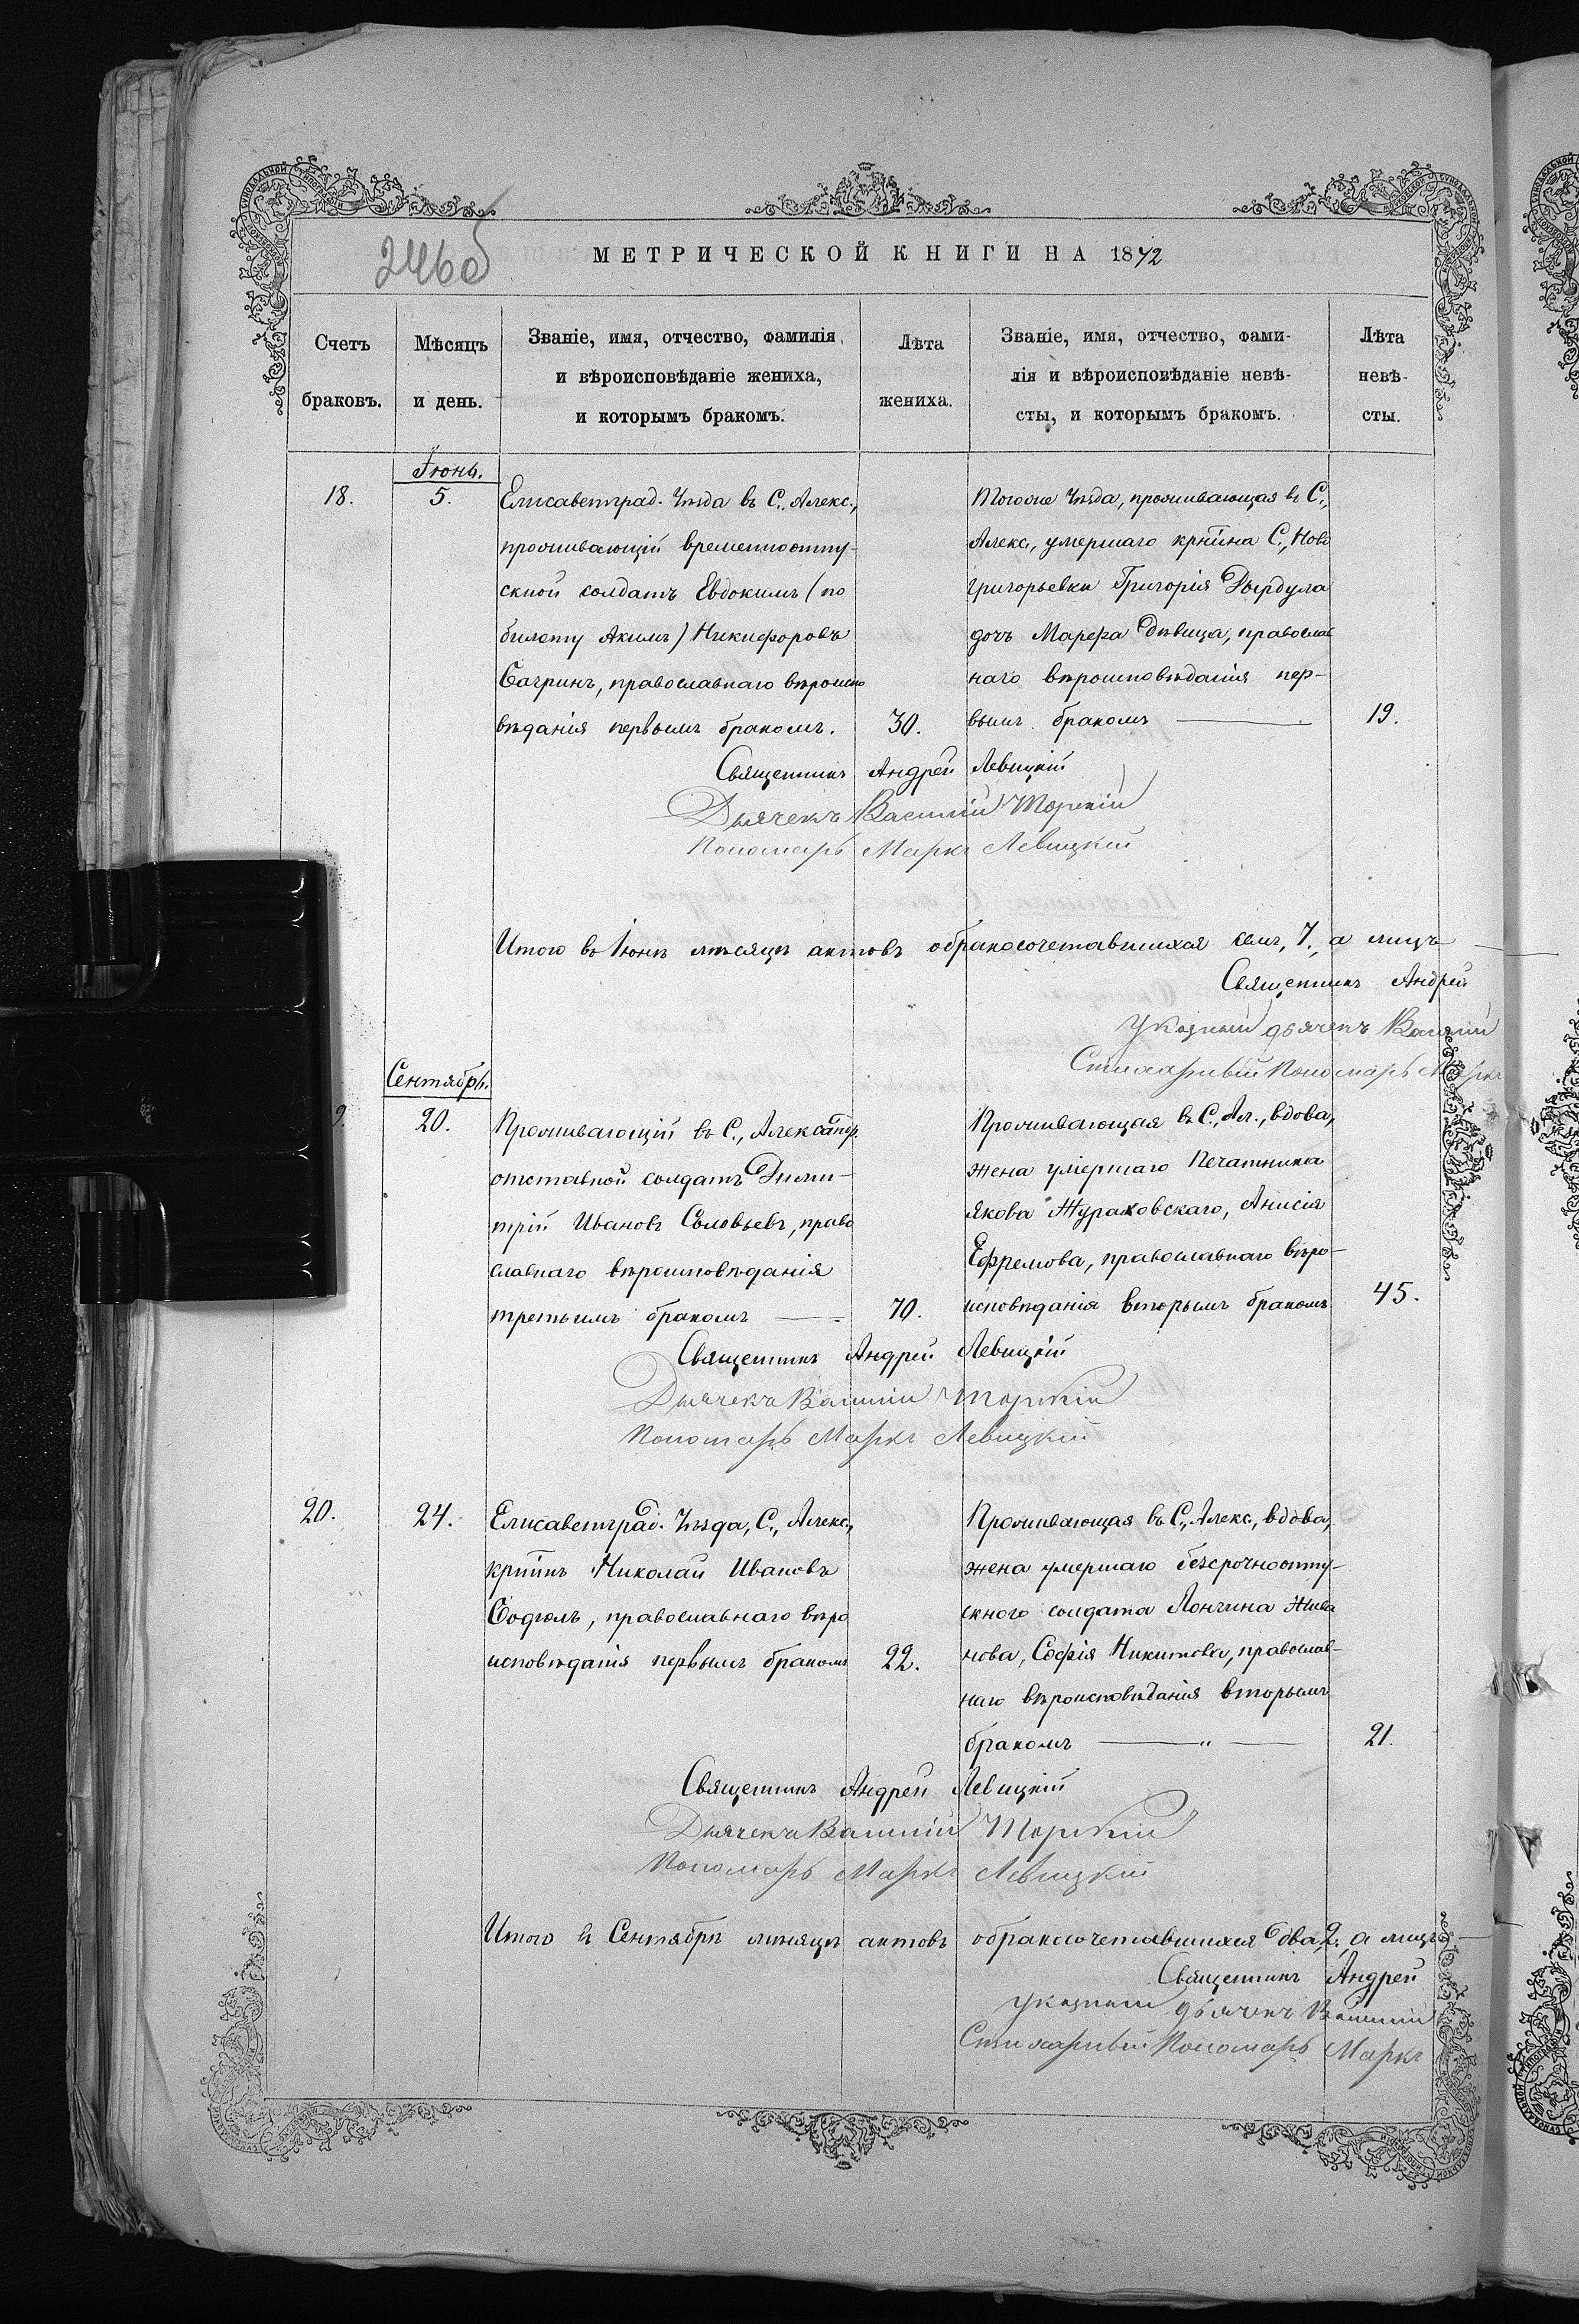 246об
МЕТРИЧЕСКОЙ КНИГИ НА 1872
Счетъ браковъ.
Мѣсяцъ и день.
Званіе, имя, отчество, фамилія
и вѣроисповѣданіе жениха,
и которымъ бракомъ.
Лѣта жениха.
Званіе, имя, отчество, фами-
лія и вѣроисповѣданіе невѣ-
сты, и которымъ бракомъ.
Лѣта невѣ-
сты.
Іюнь.
18.
5.
Елисаветград. Уѣзда въ С., Алекс.,
проживающій временноотпу-
скной солдатъ Евдокимъ (по
билету Акимъ) Никифоровъ
Багринъ, православнаго вѣроиспо
вѣданія первымъ бракомъ.
30.
Тогоже Уѣзда, проживающая въ С.,
Алекс., умершаго крѣтіна С., Ново
григорьевки Григорія Дырдула
дочь Марфа Дѣвица, православ
наго вѣроисповѣданія пер-
вымъ бракомъ
19.
Священникъ Андрей Левицкій
Дьячекъ Василій Торскій
Пономарь Маркъ Левицкій
Итого въ Іюнѣ мѣсяцѣ актовъ обракосочетавшихся семь, 7., а лицъ
Священникъ Андрей
Указный дьячекъ Василій
Стихарный Пономарь Маркъ
Сентябрь.
9.
20.
Проживающій въ С., Александр.
отставной солдатъ Дими-
трій Ивановъ Соловьевъ, право
славнаго вѣроисповѣданія
третьимъ бракомъ
70.
Проживающая въ С., Ал., вдова,
жена умершаго Печатника
Якова Жураховскаго, Анисія
Ефремова, православнаго вѣро-
исповѣданія вторымъ бракомъ
45.
Священникъ Андрей Левицкій
Дьячекъ Василій Торскій
Пономарь Маркъ Левицкій
20.
24.
Елисаветград. Уѣзда, С., Алекс.,
крѣтінъ Николай Ивановъ
Бодюлъ, православнаго вѣро
исповѣданія первымъ бракомъ
22.
Проживающая въ С., Алекс., вдова,
жена умершаго безсрочноотпу-
скного солдата Лончина Жива
нова, Софія Никитова, православ-
наго вѣроисповѣданія вторымъ
бракомъ
21.
Священникъ Андрей Левицкій
Дьячекъ Василій Торскій
Пономарь Маркъ Левицкій
Итого въ Сентябрѣ мѣсяцѣ актовъ обракосочетавшихся два, 2., а лицъ
Священникъ Андрей
Указный дьячекъ Василій
Стихарный Пономарь Маркъ